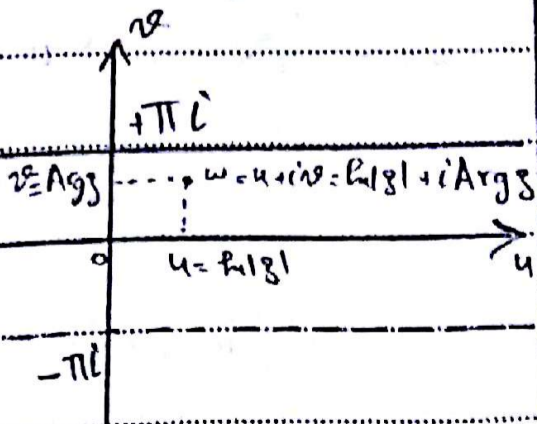 v
+πi
v=Agz w=u+iv=ln|z|+iArgz
o u=ln|z| u
-πi